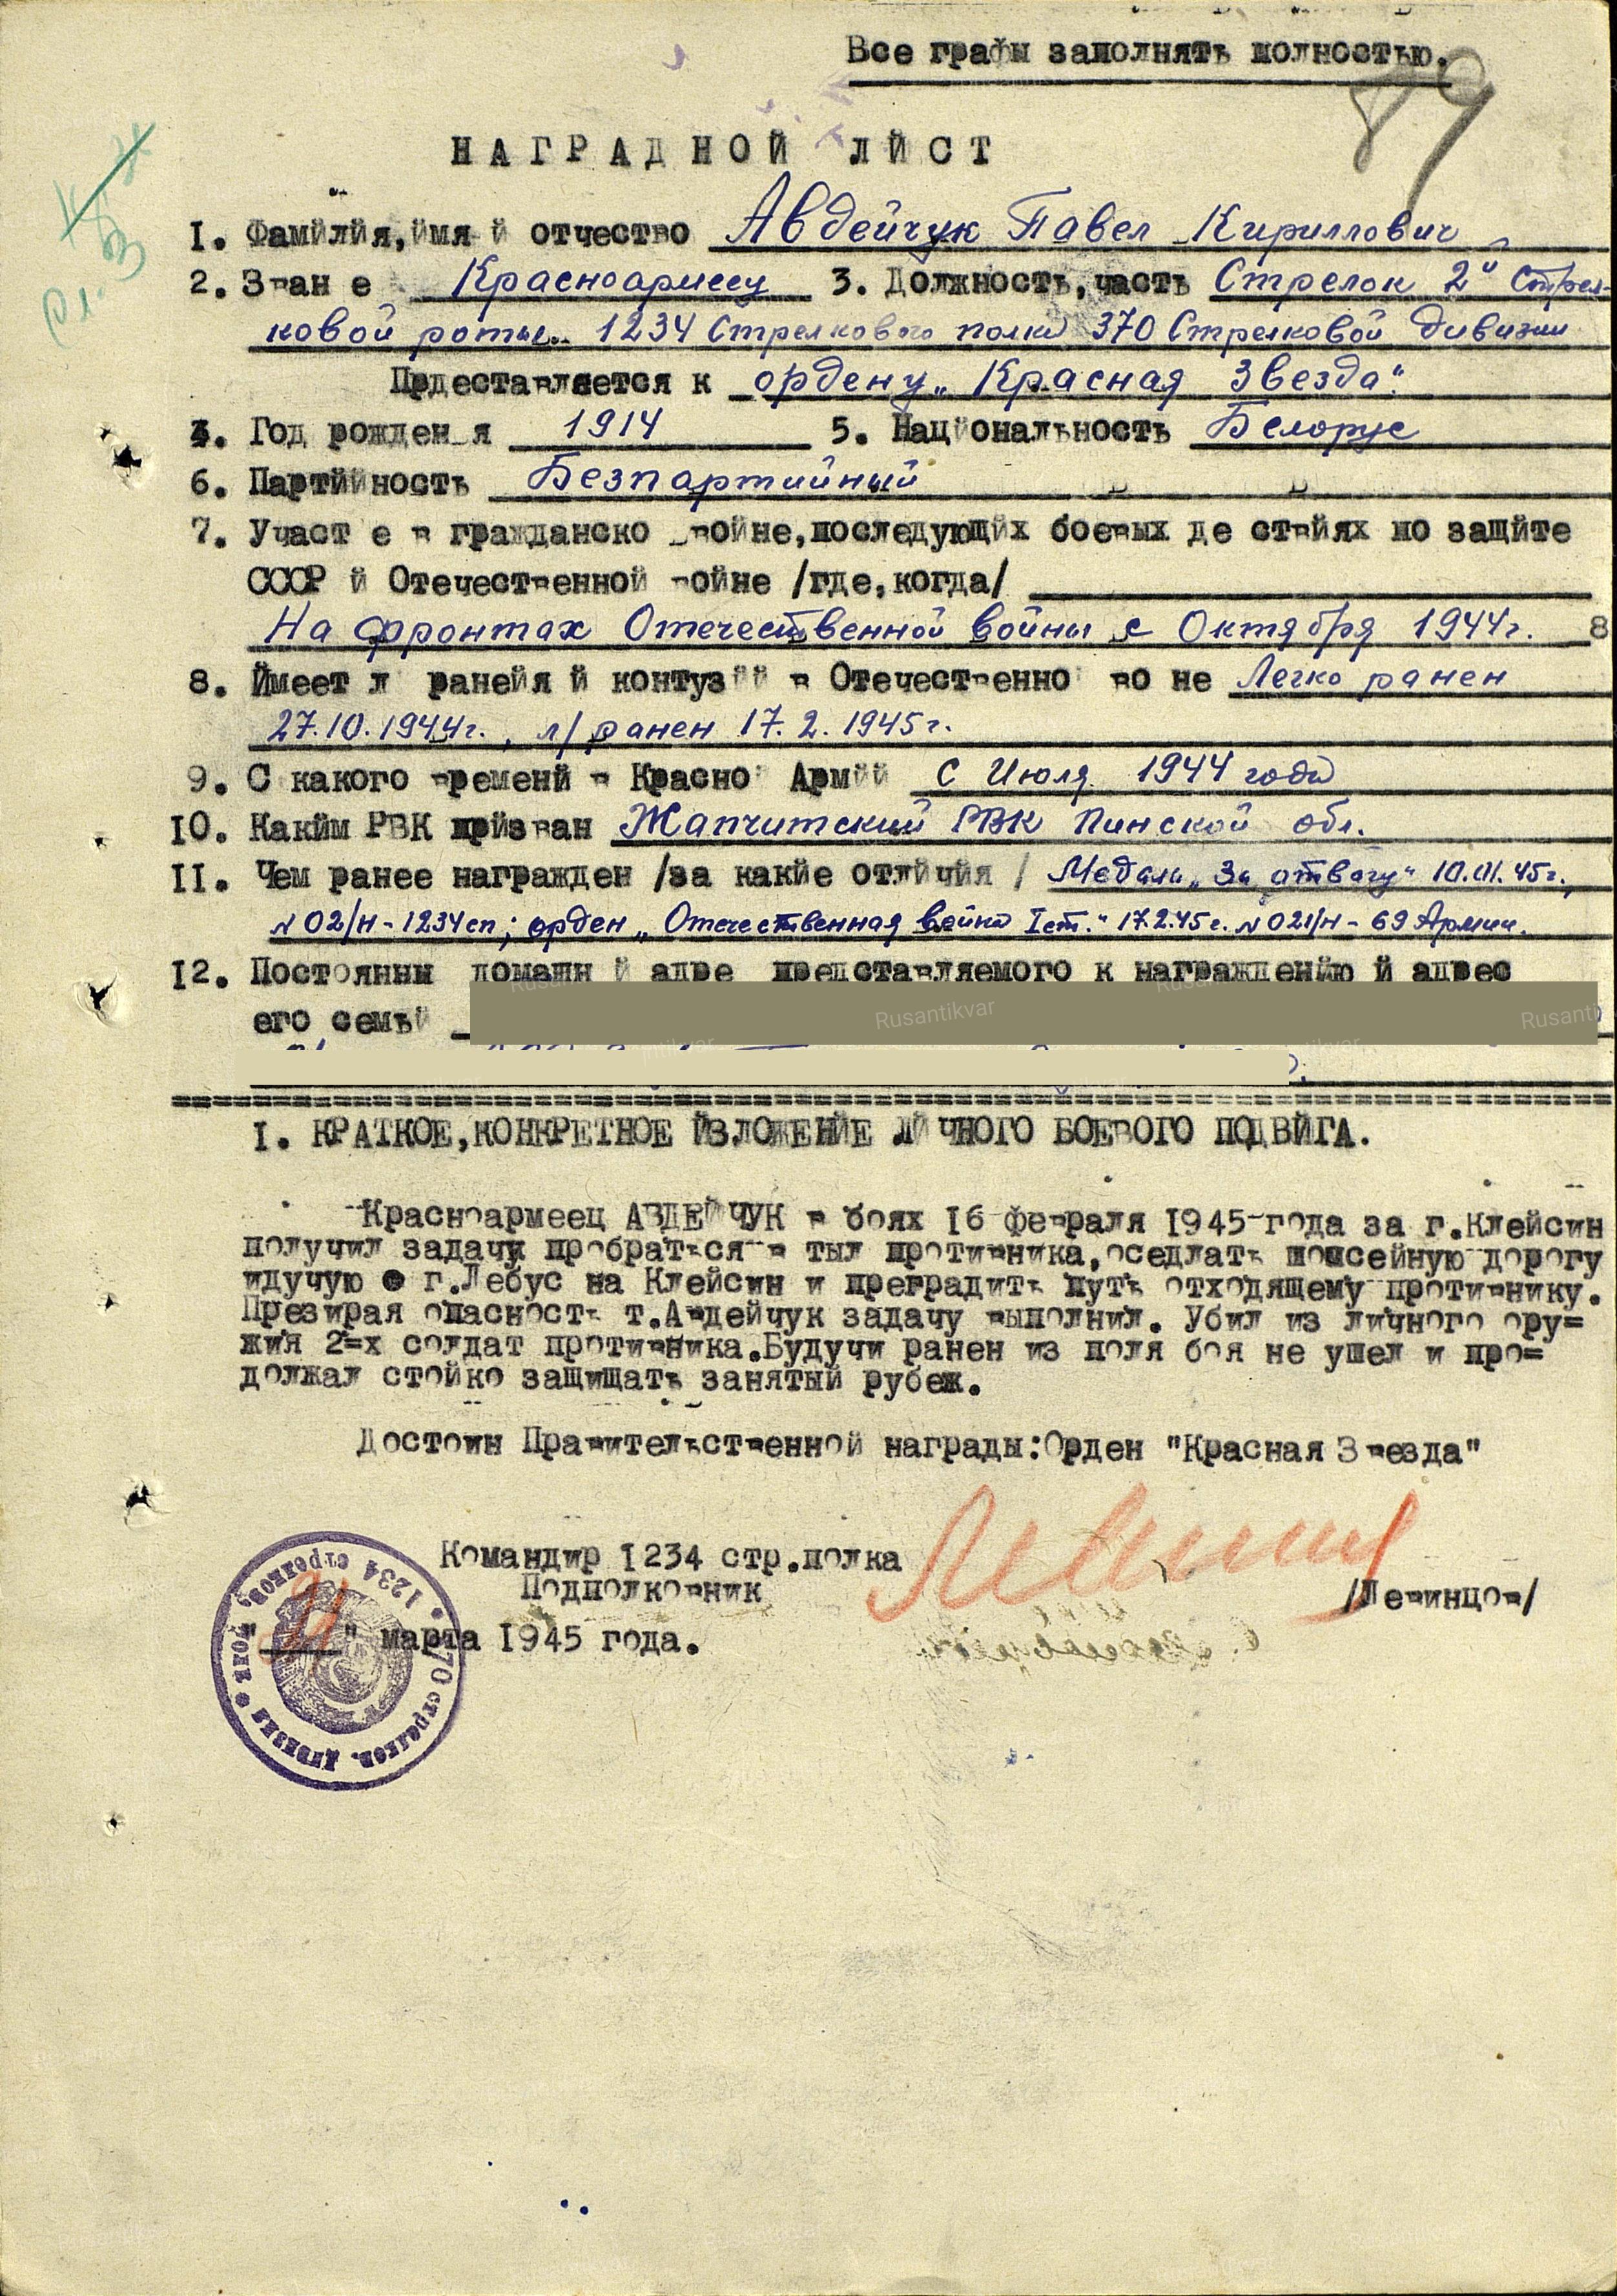 Все графы заполнять полностью.
89
НАГРАДНОЙ ЛЙСТ
I. Фамйлйя,ймя й отчество Авдейчук Павел Кириллович
2. Зван е Красноармеец 3. Должность,часть Стрелок 2й Стрел-
ковой роты 1234 Стрелкового полка 370 Стрелковой дивизии
Прдеставляется к ордену „Красная Звезда".
4. Год рожден я 1914 5. Нацйональность Белорус
6. Партййность Безпартийный
7. Участ е в гражданско войне,последующйх боевых де ствйях по защйте
СССР й Отечественной войне /где,когда/
На фронтах Отечественной войны с Октября 1944г. 8
8. Ймеет л ранейя й контузйй в Отечественно во не Легко ранен
27.10.1944г., л/ранен 17.2.1945г.
9. С какого временй в Красной Армйй С Июля 1944 года
I0. Какйм РВК прйзван Жапчитский РВК Пинской обл.
II. Чем ранее награжден /за какйе отлйчйя / Медаль „За отвагу" 10.01.45г.,
N 02/н-1234сп; орден „Отечественная война I ст." 17.2.45г. N 021/н-69 Армии.
I2. Постоянны домашн й адре представляемого к награжденйю й адрес
его семьй
I. КРАТКОЕ,КОНКРЕТНОЕ ЙЗЛОЖЕНЙЕ ЛЙЧНОГО БОЕВОГО ПОДВЙГА.
Красноармеец АВДЕЙЧУК в боях I6 февраля I945 года за г.Клейсин
получил задачу пробраться в тыл противника,оседлать шоссейную дорогу
идучую с г.Лебус на Клейсин и преградить путь отходящему противнику.
Презирая опасность т.Авдейчук задачу выполнил. Убил из личного ору=
жия 2=х солдат противника.Будучи ранен из поля боя не ушел и про=
должал стойко защищать занятый рубеж.
Достоин Правительственной награды:Орден "Красная Звезда"
Командир I234 стр.полка
Подполковник
/Левинцов/
" " марта I945 года.
1234 стрелков. полк • 370 стрелков. дивизия
Rusantikvar